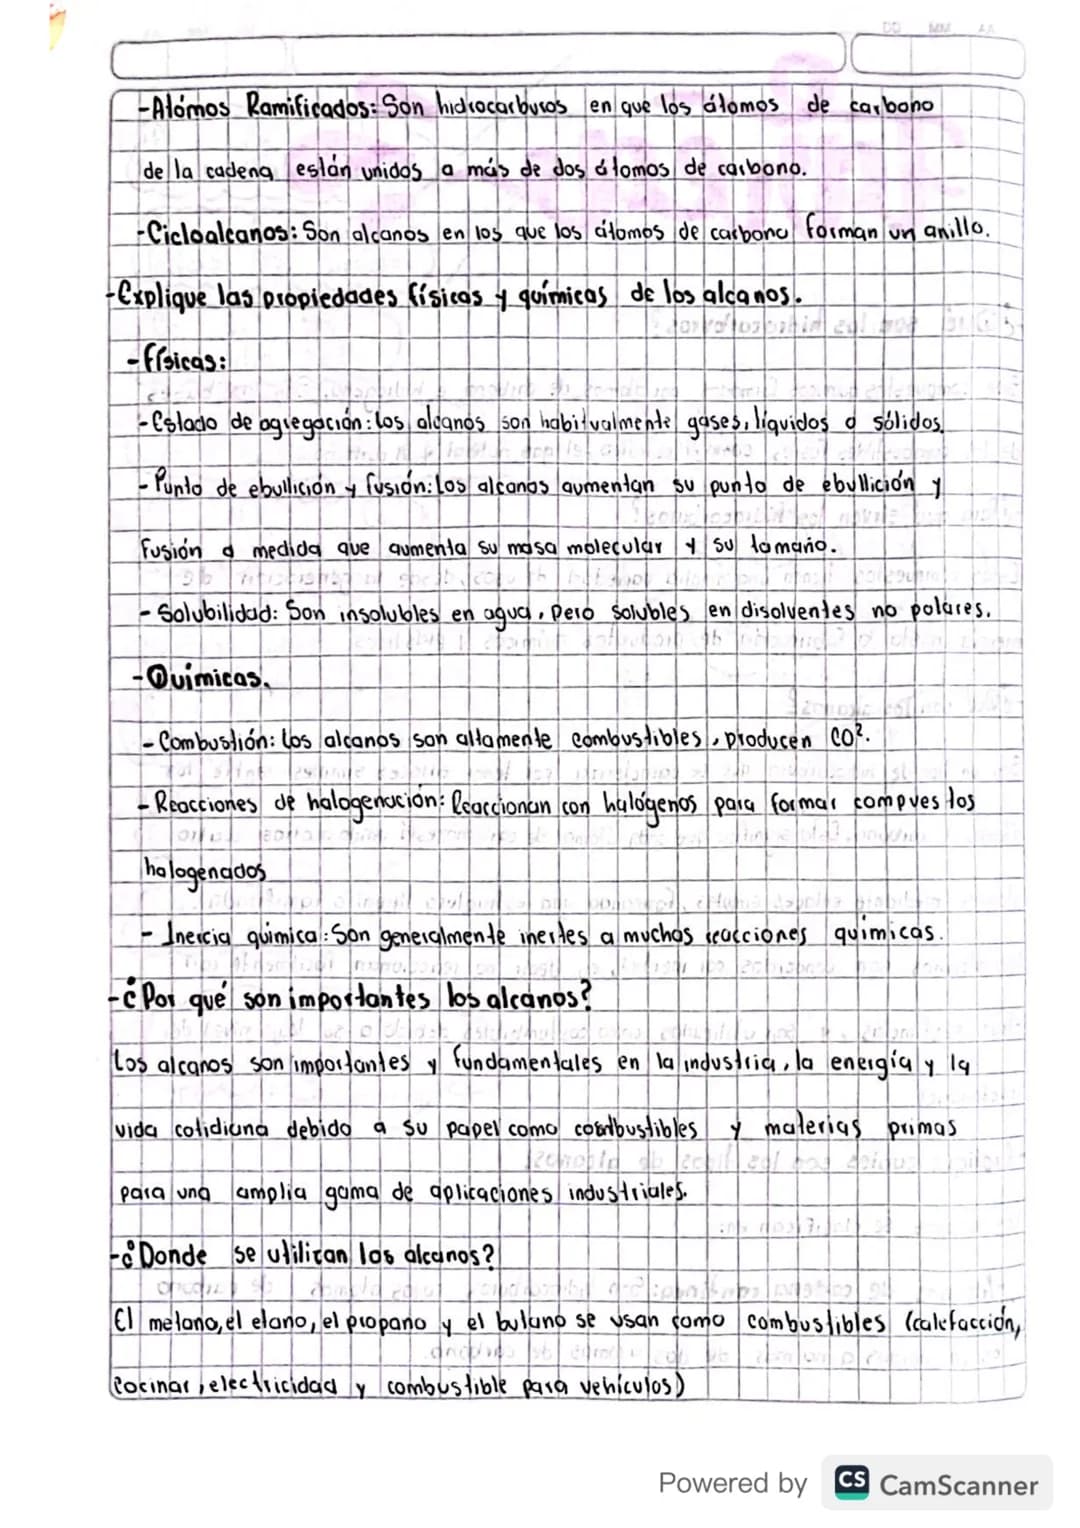 DD MM AA
-Atómos Ramificados: Son hidrocarburos en que los átomos de carbono
de la cadena están unidos a más de dos átomos de carbono.
-Cicloalcanos: Son alcanos en los que los átomos de carbono forman un anillo.
-Explique las propiedades físicas y químicas de los alcanos.
-Físicas:
-Estado de agregación: Los alcanos son habitualmente gases, líquidos o sólidos.
-Punto de ebullición y fusión: Los alcanos aumentan su punto de ebullición y
fusión a medida que aumenta su masa molecular y su tamaño.
-Solubilidad: Son insolubles en agua, pero solubles en disolventes no polares.
-Químicas.
-Combustión: Los alcanos son altamente combustibles, producen CO².
-Reacciones de halogenación: Reaccionan con halógenos para formar compuestos
halogenados
-Inercia química: Son generalmente inertes a muchas reacciones químicas.
-¿Por qué son importantes los alcanos?
Los alcanos son importantes y fundamentales en la industria, la energía y la
vida cotidiana debido a su papel como combustibles y materias primas
para una amplia gama de aplicaciones industriales.
-¿Donde se utilizan los alcanos?
El metano, el etano, el propano y el butano se usan como combustibles (calefacción,
cocinar, electricidad y combustible para vehículos)
Powered by CS CamScanner